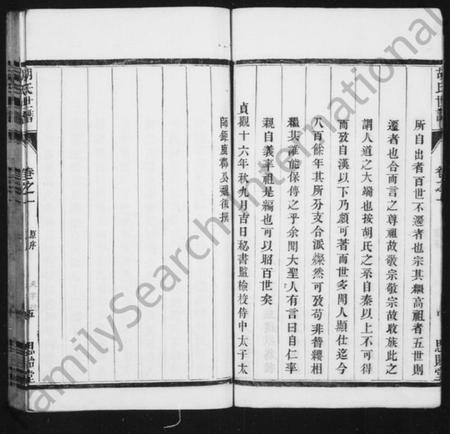 胡氏世譜
所自出者百世不遷者也宗其繼高祖者五世則
遷者也合而言之尊祖故敬宗敬宗故收族此之
謂人道之大端也按胡氏之系自秦以上不可得
而攷自漢以下乃顯可著而世多聞人顯仕迄今
八百餘年其所分支合派燦然可攷苟非賢穎相
繼其誰能保傳之乎余聞大聖人有言曰自仁率
親自義率祖是編也可以昭百世矣
貞觀十六年秋九月吉日秘書監檢校侍中太子太
師鄭國公魏徵撰
思貽堂
胡氏世譜
卷之一
原序
五
思貽堂
FamilySearch International